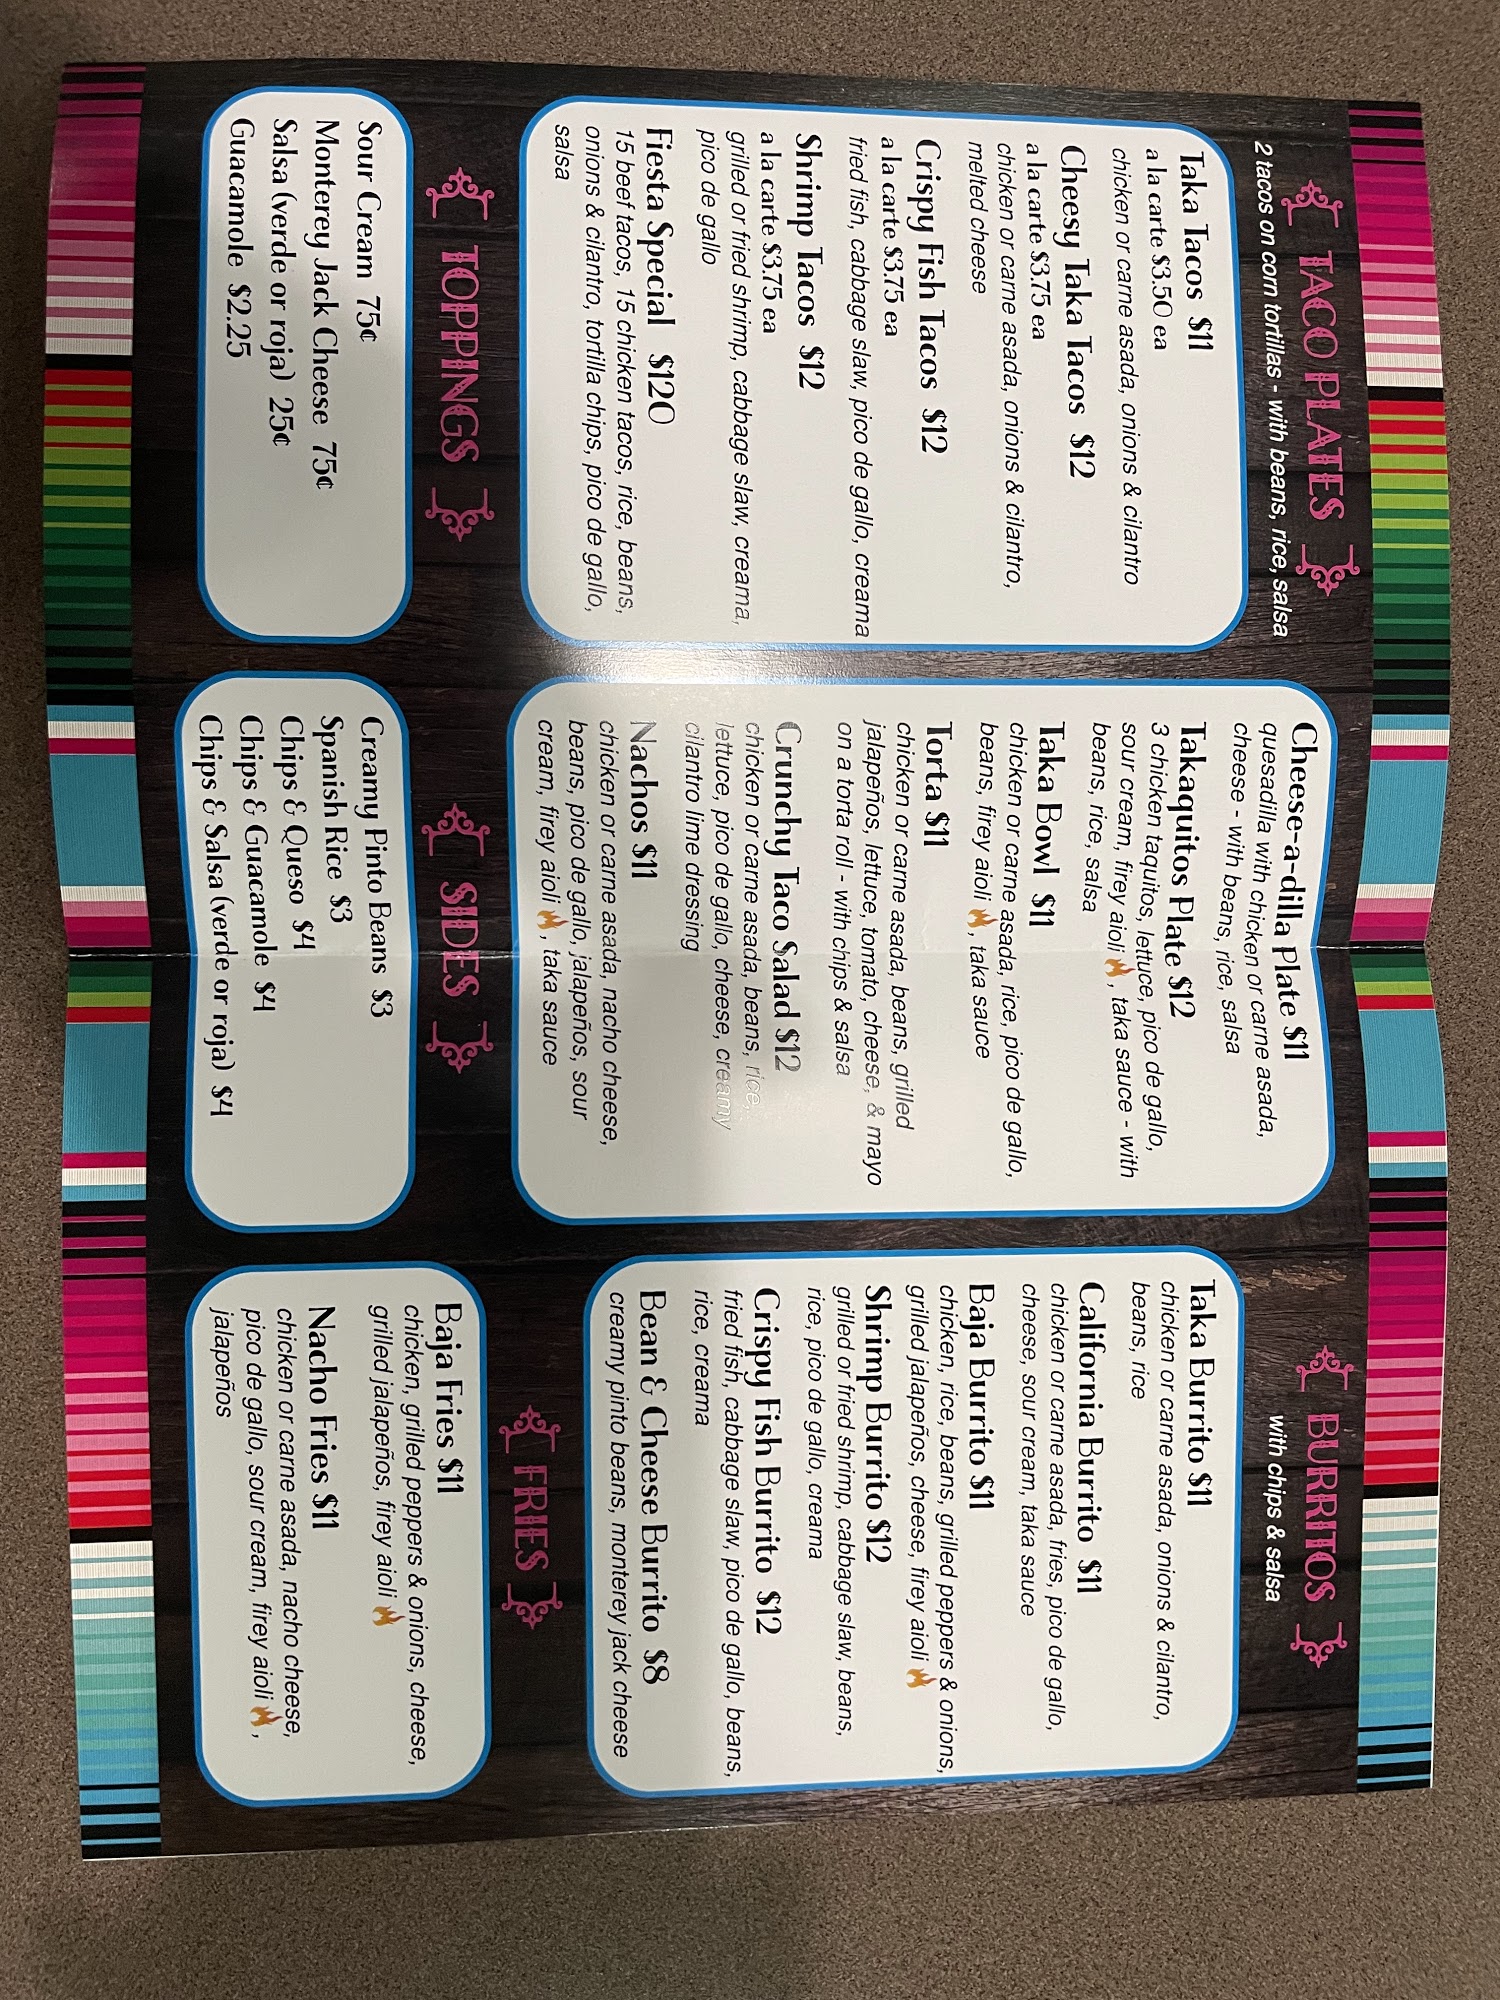 TACO PLATES
2 tacos on corn tortillas - with beans, rice, salsa
Taka Tacos $11
a la carte $3.50 ea
chicken or carne asada, onions & cilantro
Cheesy Taka Tacos $12
a la carte $3.75 ea
chicken or carne asada, onions & cilantro,
melted cheese
Crispy Fish Tacos $12
a la carte $3.75 ea
fried fish, cabbage slaw, pico de gallo, creama
Shrimp Tacos $12
a la carte $3.75 ea
grilled or fried shrimp, cabbage slaw, creama,
pico de gallo
Fiesta Special $120
15 beef tacos, 15 chicken tacos, rice, beans,
onions & cilantro, tortilla chips, pico de gallo,
salsa
TOPPINGS
Sour Cream 75¢
Monterey Jack Cheese 75¢
Salsa (verde or roja) 25¢
Guacamole $2.25
Cheese-a-dilla Plate $11
quesadilla with chicken or carne asada,
cheese - with beans, rice, salsa
Takaquitos Plate $12
3 chicken taquitos, lettuce, pico de gallo,
sour cream, firey aioli🔥, taka sauce - with
beans, rice, salsa
Taka Bowl $11
chicken or carne asada, rice, pico de gallo,
beans, firey aioli🔥, taka sauce
Torta $11
chicken or carne asada, beans, grilled
jalapeños, lettuce, tomato, cheese, & mayo
on a torta roll - with chips & salsa
Crunchy Taco Salad $12
chicken or carne asada, beans, rice,
lettuce, pico de gallo, cheese, creamy
cilantro lime dressing
Nachos $11
chicken or carne asada, nacho cheese,
beans, pico de gallo, jalapeños, sour
cream, firey aioli🔥, taka sauce
SIDES
Creamy Pinto Beans $3
Spanish Rice $3
Chips & Queso $4
Chips & Guacamole $4
Chips & Salsa (verde or roja) $4
BURRITOS
with chips & salsa
Taka Burrito $11
chicken or carne asada, onions & cilantro,
beans, rice
California Burrito $11
chicken or carne asada, fries, pico de gallo,
cheese, sour cream, taka sauce
Baja Burrito $11
chicken, rice, beans, grilled peppers & onions,
grilled jalapeños, cheese, firey aioli🔥
Shrimp Burrito $12
grilled or fried shrimp, cabbage slaw, beans,
rice, pico de gallo, creama
Crispy Fish Burrito $12
fried fish, cabbage slaw, pico de gallo, beans,
rice, creama
Bean & Cheese Burrito $8
creamy pinto beans, monterey jack cheese
FRIES
Baja Fries $11
chicken, grilled peppers & onions, cheese,
grilled jalapeños, firey aioli🔥
Nacho Fries $11
chicken or carne asada, nacho cheese,
pico de gallo, sour cream, firey aioli🔥,
jalapeños